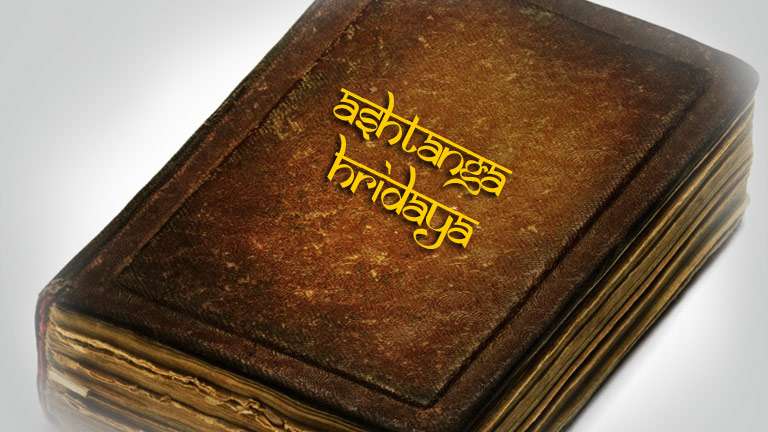 ashtanga
hridaya